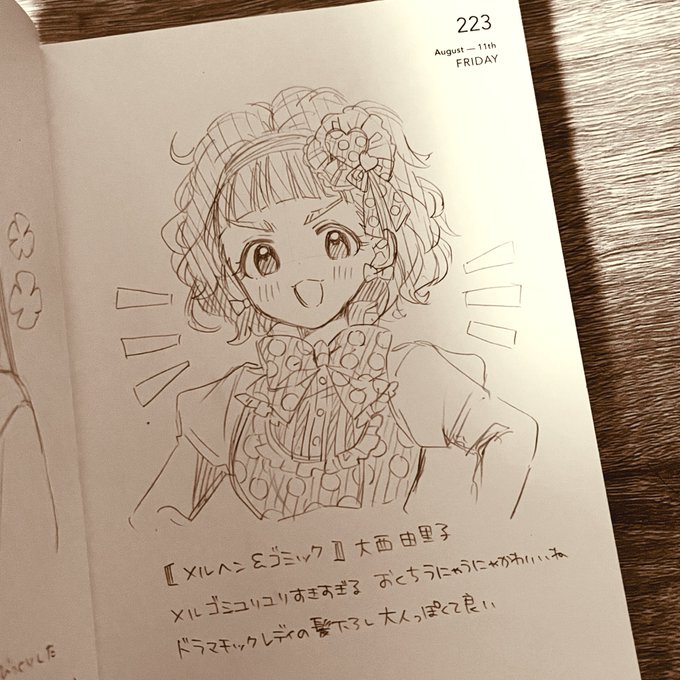 223
August — 11th
FRIDAY
【メルヘン&ゴミック】大西由里子
メルゴミユリユリすきすぎる おくちうにゃうにゃかわいいね
ドラマチックレディの髪下ろし大人っぽくて良い